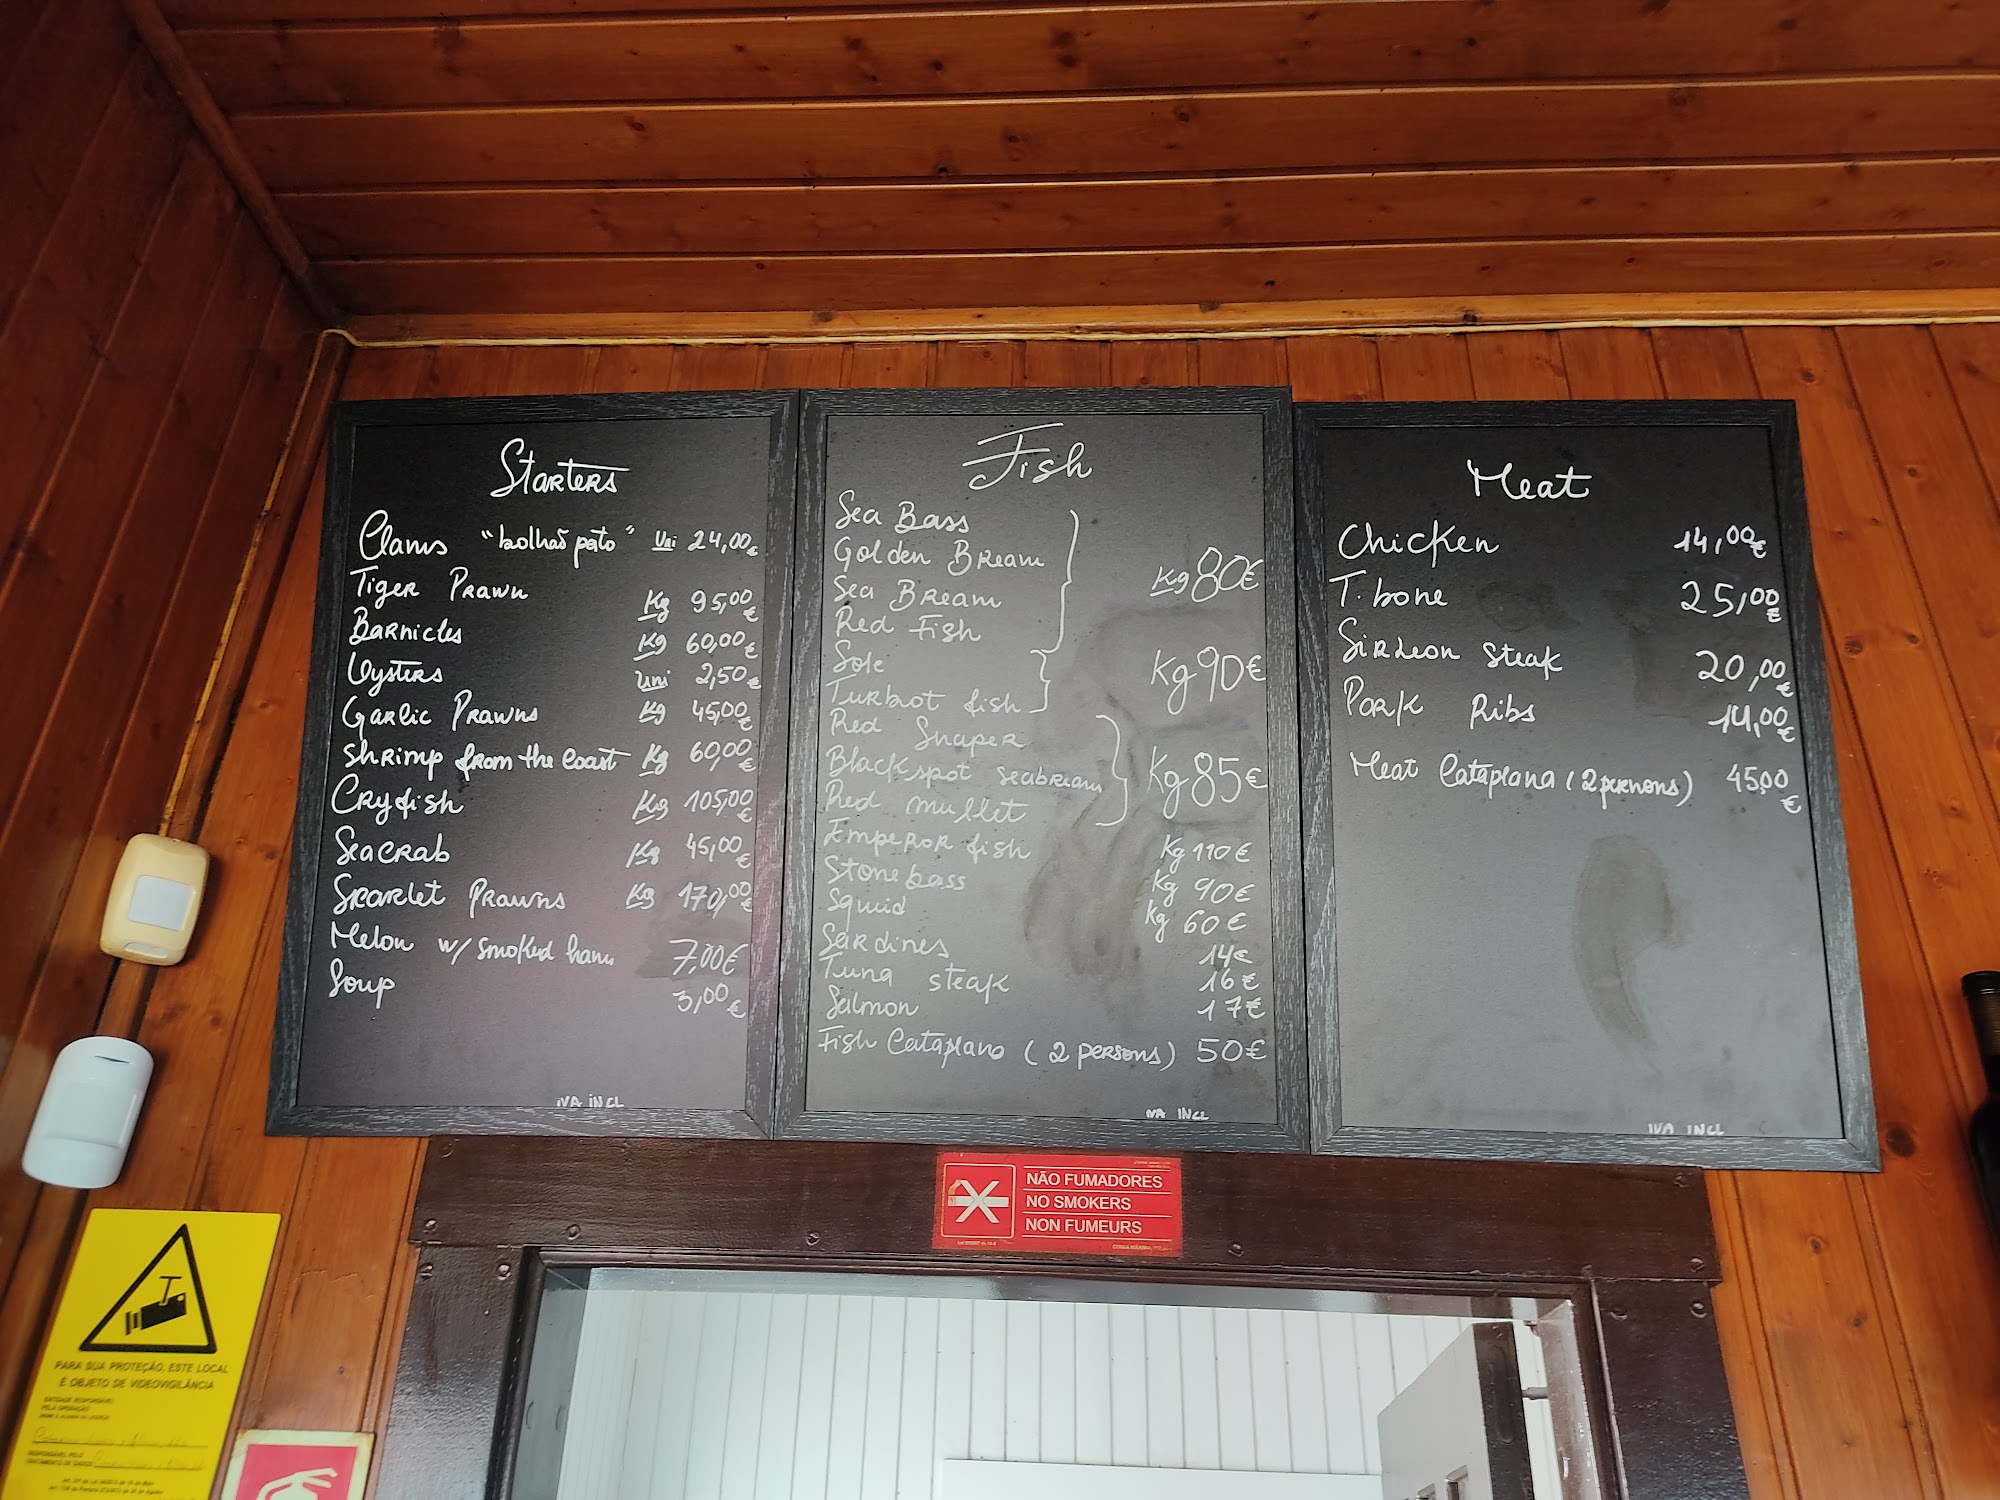 Starters
Clams "bolhão pato" Uni 24,00€
Tiger Prawn Kg 95,00€
Barnicles Kg 60,00€
Oysters Uni 2,50€
Garlic Prawns Kg 45,00€
Shrimp from the Coast Kg 60,00€
Cryfish Kg 105,00€
Seacrab Kg 45,00€
Scarlet Prawns Kg 170,00€
Melon w/ smoked ham 7,00€
Soup 3,00€
IVA INCL
Fish
Sea Bass
Golden Bream
Sea Bream
Red Fish
Kg 80€
Sole
Turbot fish
Kg 90€
Red Snaper
Blackspot seabream
Red mullet
Kg 85€
Emperor fish Kg 110€
Stonebass Kg 90€
Squid Kg 60€
Sardines 14€
Tuna steak 16€
Salmon 17€
Fish Cataplana (2 persons) 50€
IVA INCL
Meat
Chicken 14,00€
T.bone 25,00€
Sirleon steak 20,00€
Pork Ribs 14,00€
Meat Cataplana (2 persons) 45,00€
IVA INCL
NÃO FUMADORES
NO SMOKERS
NON FUMEURS
PARA SUA PROTEÇÃO, ESTE LOCAL
É OBJETO DE VIDEOVIGILÂNCIA
ENTIDADE RESPONSÁVEL
PELA OPERAÇÃO
RESPONSÁVEL PELO
TRATAMENTO DE DADOS